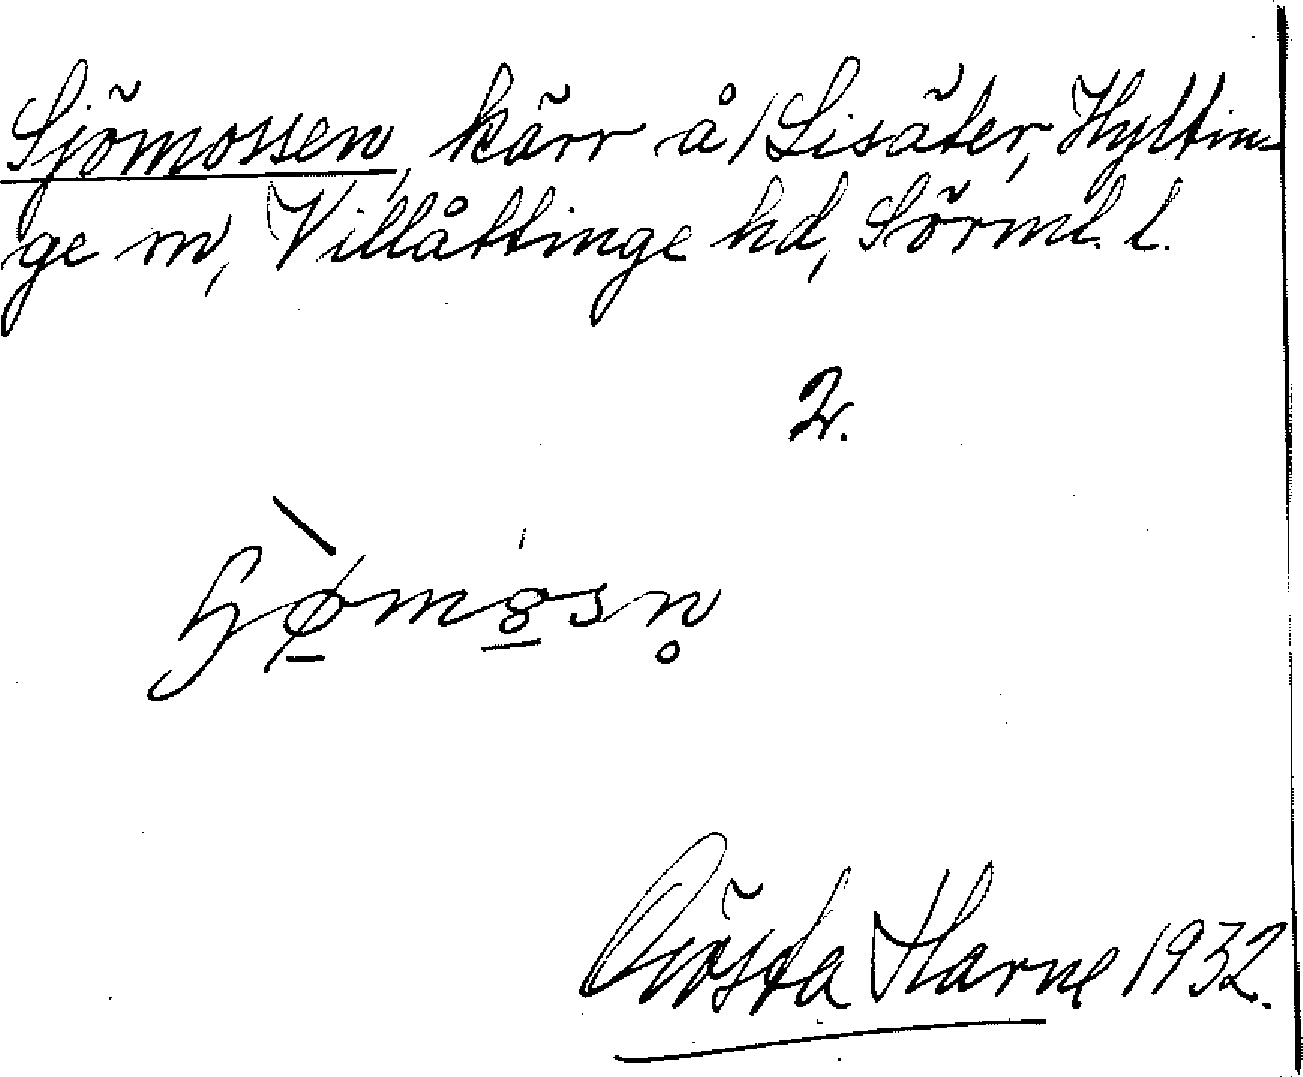 Sjömossen, kärr å Lisäter, Hyltin-
ge sn, Villåttinge hd, Sörml. l.
2.
Gösta Harne 1932.